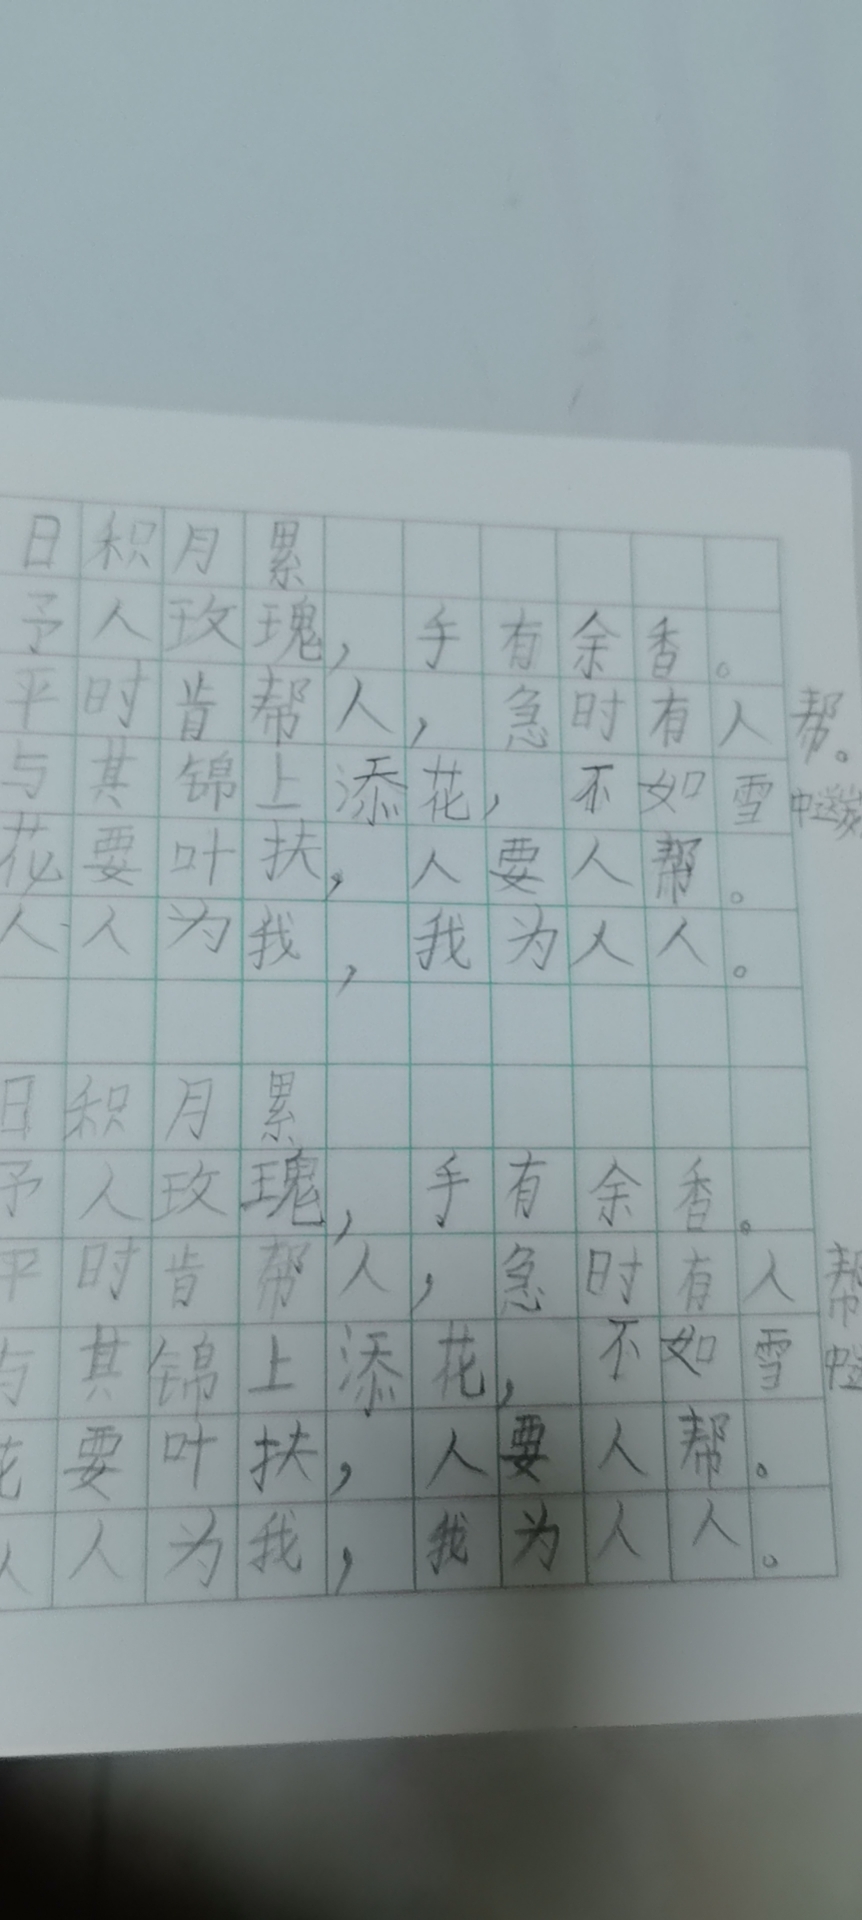 日积月累
予人玫瑰，手有余香。
平时肯帮人，急时有人帮。
与其锦上添花，不如雪中送炭
花要叶扶，人要人帮。
人人为我，我为人人。
日积月累
予人玫瑰，手有余香。
平时肯帮人，急时有人帮
与其锦上添花，不如雪中送
花要叶扶，人要人帮。
人人为我，我为人人。